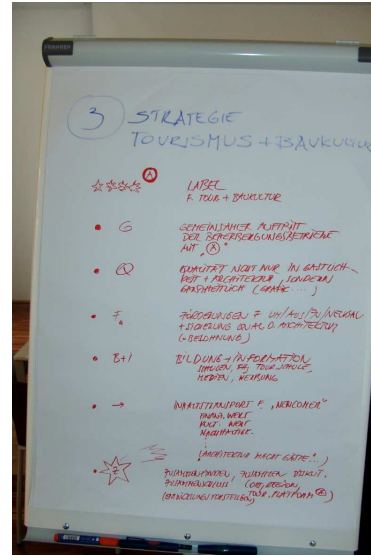 FRANKEN
3 STRATEGIE
TOURISMUS + BAUKULTUR
A LABEL
F. TOUR + BAUKULTUR
• G GEMEINSAMER AUFTRITT
DER BEHERBERGUNGSBETRIEBE
MIT "A"
• Q QUALITÄT NICHT NUR IN GASTLICH-
KEIT + ARCHITEKTUR, SONDERN
GANZHEITLICH (GRAFIK ....)
• F FÖRDERUNGEN F. UM/AUS/ZU/NEUBAU
+ SICHERUNG QUAL. D. ARCHITEKTUR
(= BELOHNUNG)
• B+I BILDUNG + INFORMATION
SCHULEN, TOUR. SCHULE,
MEDIEN, WERBUNG
• → INHALTSTRANSPORT F. "NEWCOMER"
FINANZ. WERT
KULT. WERT
NACHHALTIGK.
("ARCHITEKTUR MACHT GÄSTE"...)
• Z ZUSAMMENFINDEN, ZUSAMMEN DISKUT.
ZUSAMMENSCHLUSS (ORT, REGION,
TOUR. PLATTFORM A)